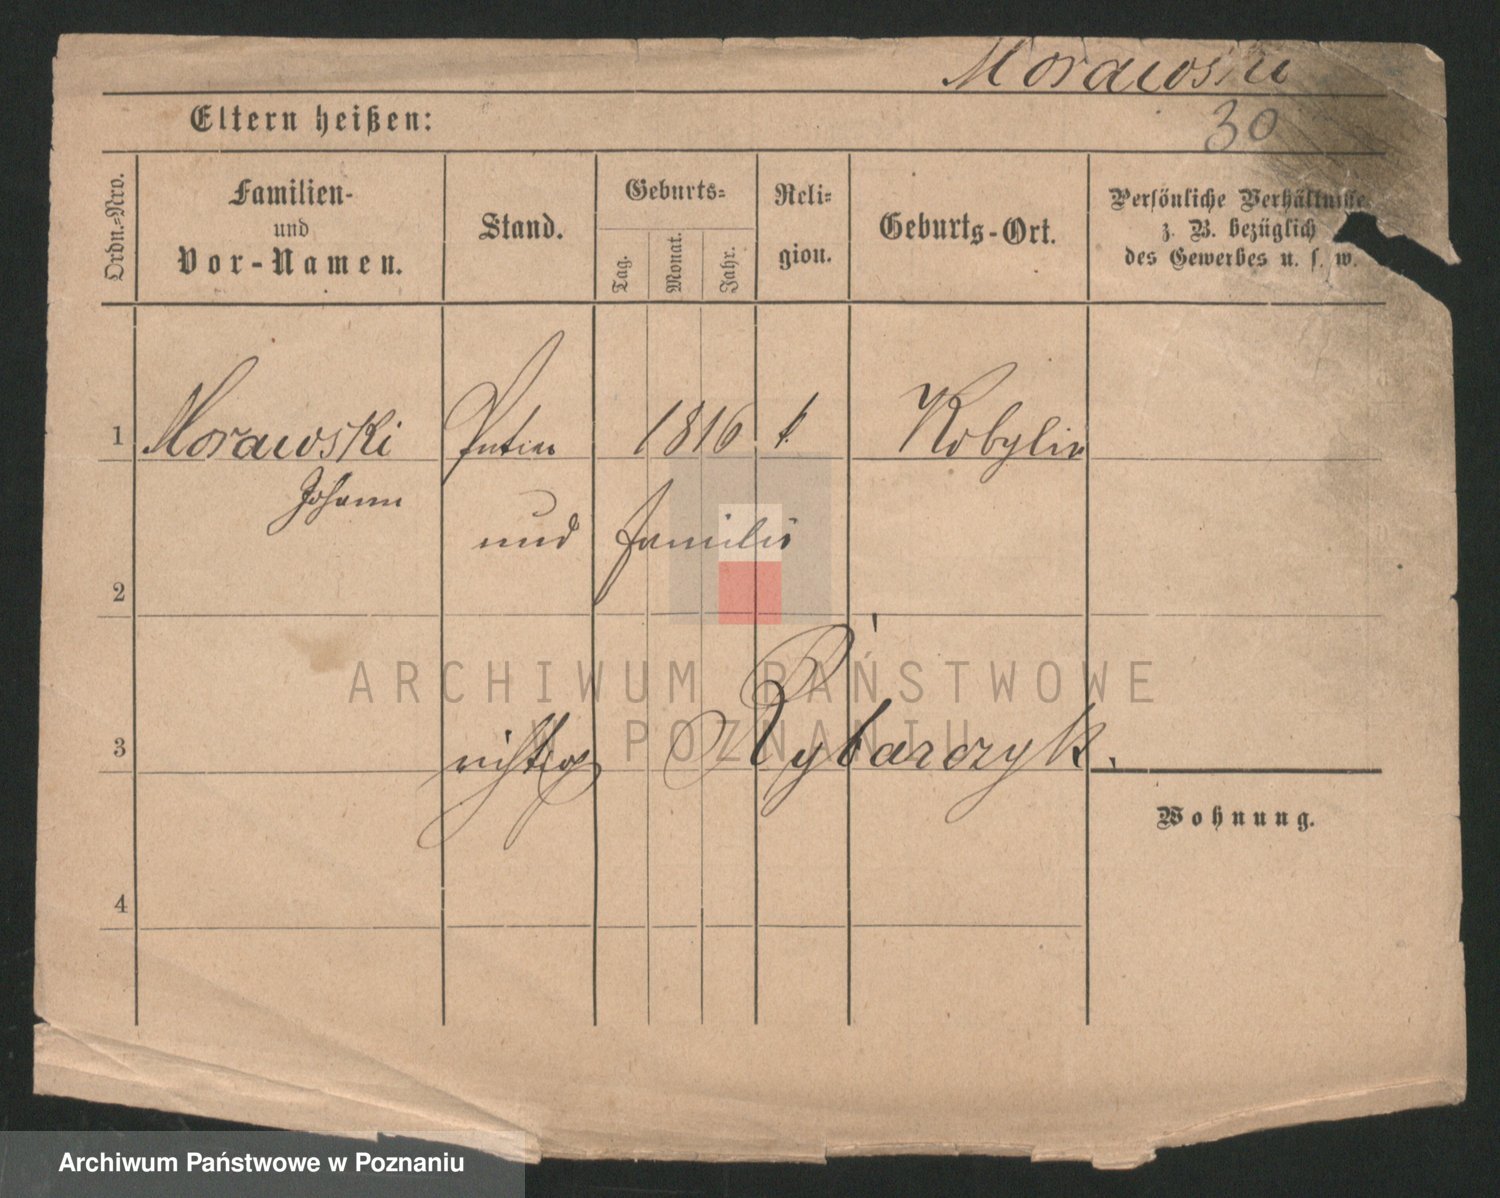 Morawski
30
Eltern heißen:
Ordn.=Nro.
Familien-
und
Vor-Namen.
Stand.
Geburts=
Tag.
Monat.
Jahr.
Reli=
gion.
Geburts-Ort.
Persönliche Verhältnisse
z. B. bezüglich
des Gewerbes u. s. w.
1 Morawski 1816 k. Kobylin
Johann
und Familie
2
ARCHIWUM PAŃSTWOWE
W POZNANIU
3 richtig Rybarczyk.
Wohnung.
4
Archiwum Państwowe w Poznaniu